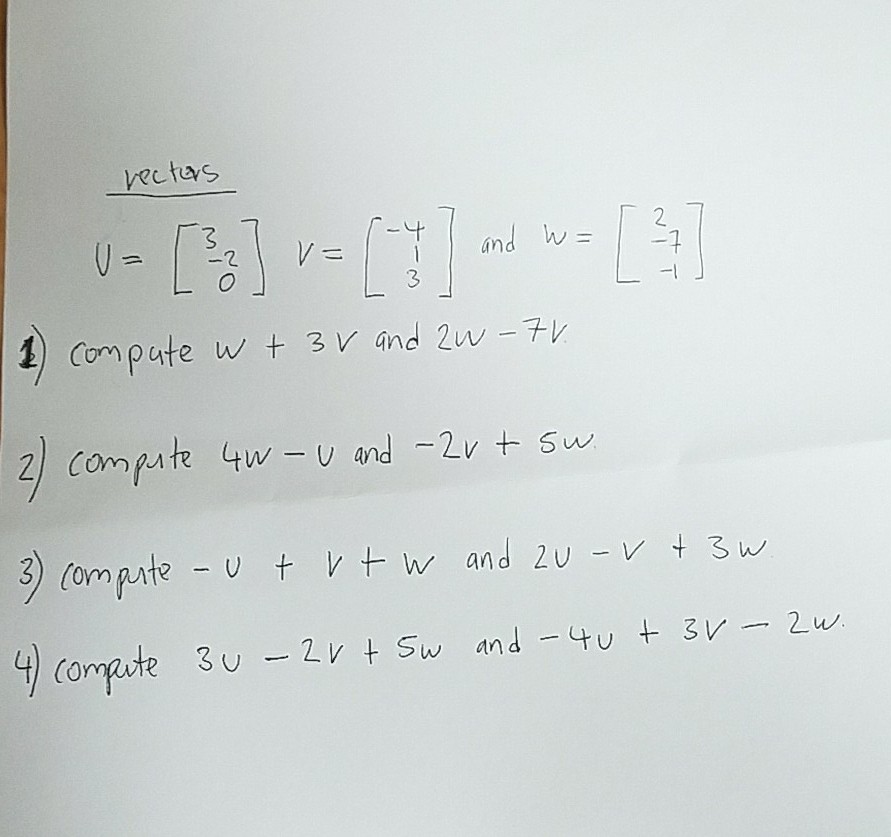 vectors
U = [3 -2 0] V = [-4 1 3] and W = [2 -7 -1]
1) compute w + 3v and 2w - 7v.
2) compute 4w - u and -2v + 5w.
3) compute - u + v + w and 2u - v + 3w.
4) compute 3u - 2v + 5w and - 4u + 3v - 2w.